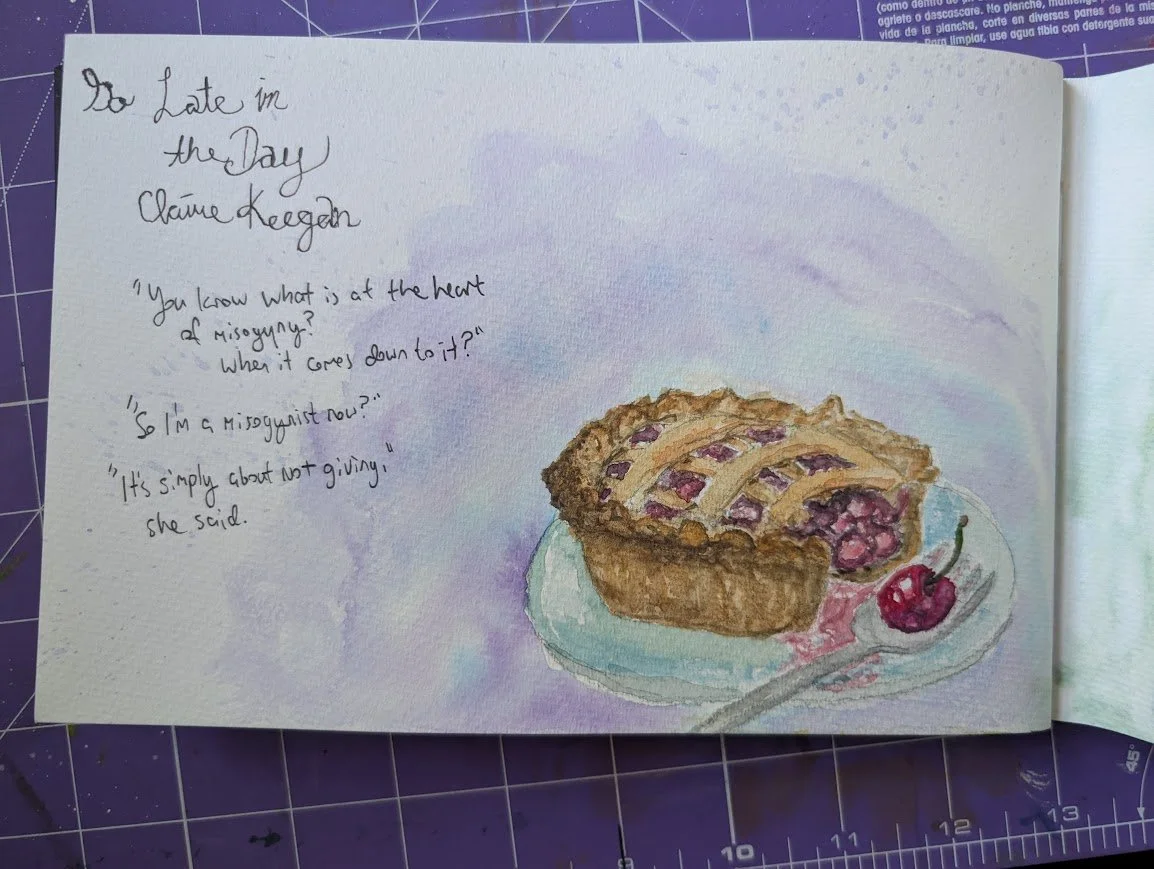 (como dentro de
agriete o descascare. No planche, mantenga
vida de la plancha, corte en diversas partes de la mis
Para limpiar, use agua tibia con detergente sua
So Late in
the Day
Claire Keegan
"You know what is at the heart
of misogyny?
When it comes down to it?"
"So I'm a misogynist now?"
"It's simply about not giving,"
she said.
45°
9 10 11 12 13